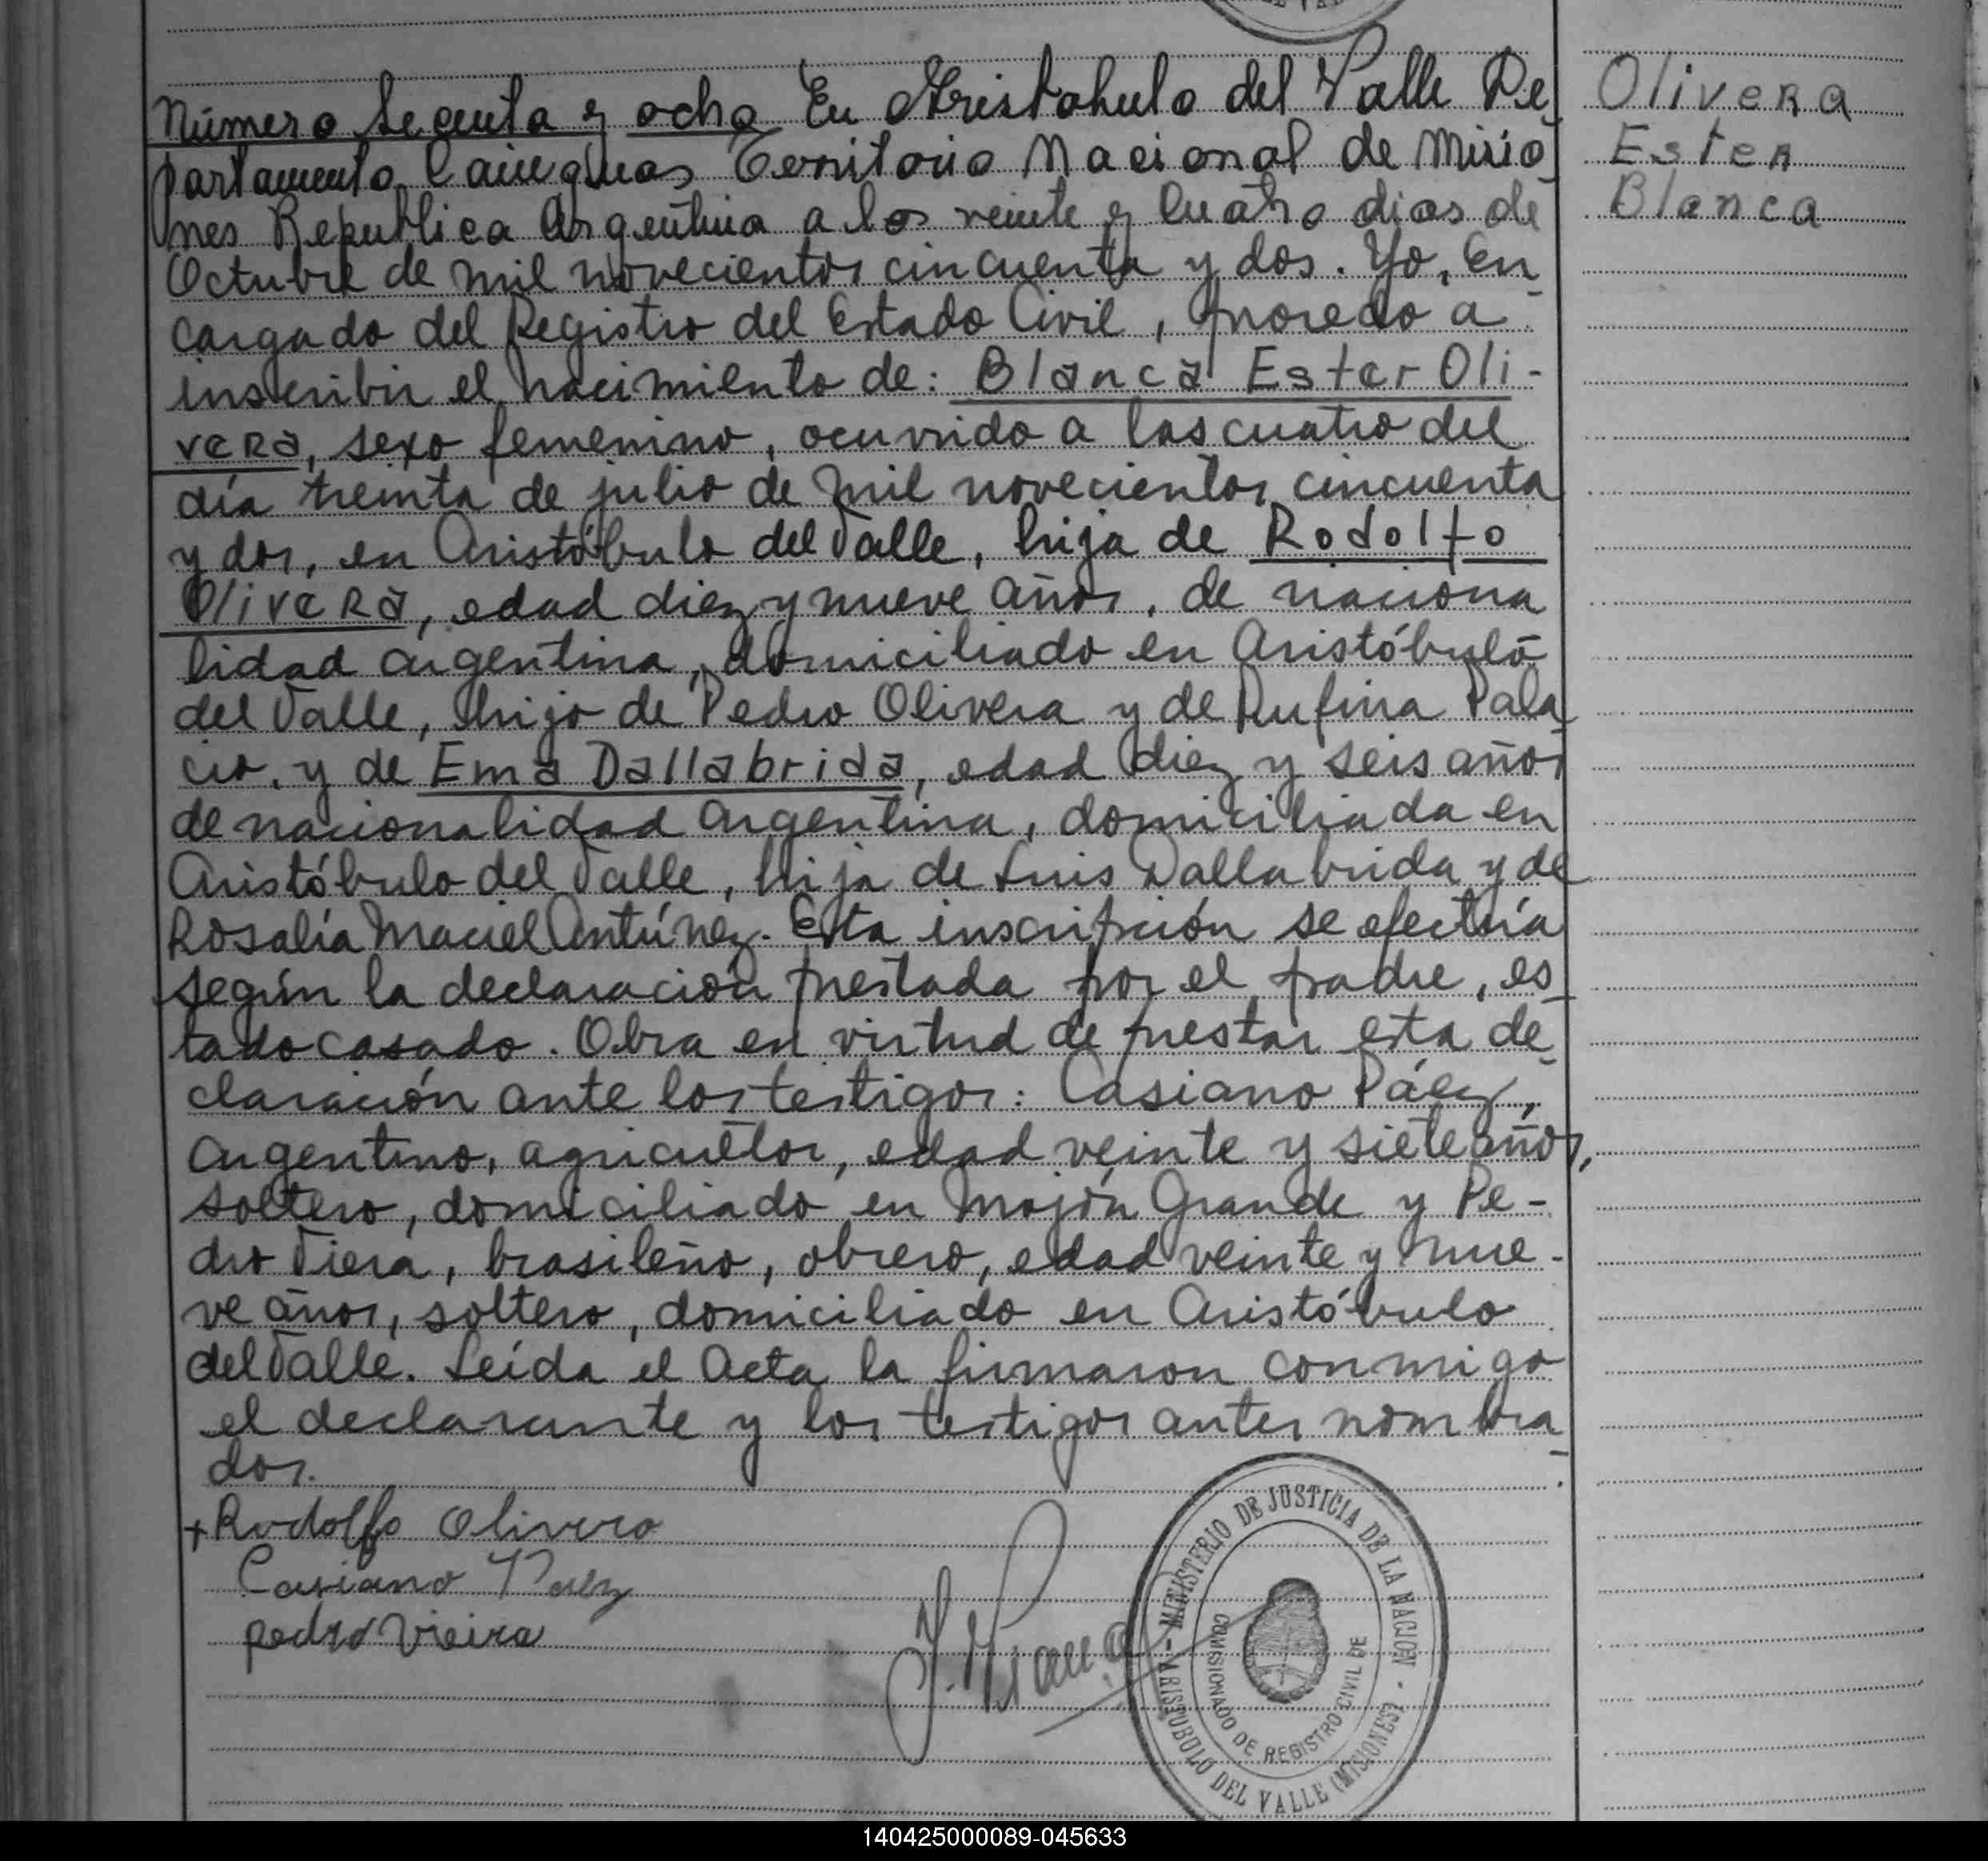 Número Secenta y ocho En Aristobulo del Valle De
Olivera
partamento Cainguas Territorio Nacional de Misio
Ester
nes Republica Argentina a los veinte y Cuatro dias de
Blanca
Octubre de mil novecientos cincuenta y dos. Yo, En
cargado del Registro del Estado Civil, procedo a
inscribir el nacimiento de: Blanca Ester Oli-
vera, sexo femenino, ocurrido a las cuatro del
día treinta de julio de mil novecientos cincuenta
y dos, en Aristóbulo del Valle, hija de Rodolfo
Olivera, edad diez y nueve años, de naciona
lidad argentina, domiciliado en Aristóbulo
del Valle, hijo de Pedro Olivera y de Rufina Pala
cio, y de Ema Dallabrida, edad diez y seis años
de nacionalidad argentina, domiciliada en
Aristóbulo del Valle, hija de Luis Dallabrida y de
Rosalía Maciel Antúnez. Esta inscripción se efectúa
según la declaración prestada por el padre, es
tado casado. Obra en virtud de prestar esta de
claración ante los testigos: Casiano Páez,
argentino, agricultor, edad veinte y siete años,
soltero, domiciliado en Mojón Grande y Pe-
dro Viera, brasileño, obrero, edad veinte y nue-
ve años, soltero, domiciliado en Aristóbulo
del Valle. Leída el Acta la firmaron conmigo
el declarante y los testigos antes nombra
dos.
+ Rodolfo Olivera
Casiano Paez
pedro vieira
MINISTERIO DE JUSTICIA DE LA NACION
COMISIONADO DE REGISTRO CIVIL DE
ARISTOBULO DEL VALLE (MISIONES)
140425000089-045633